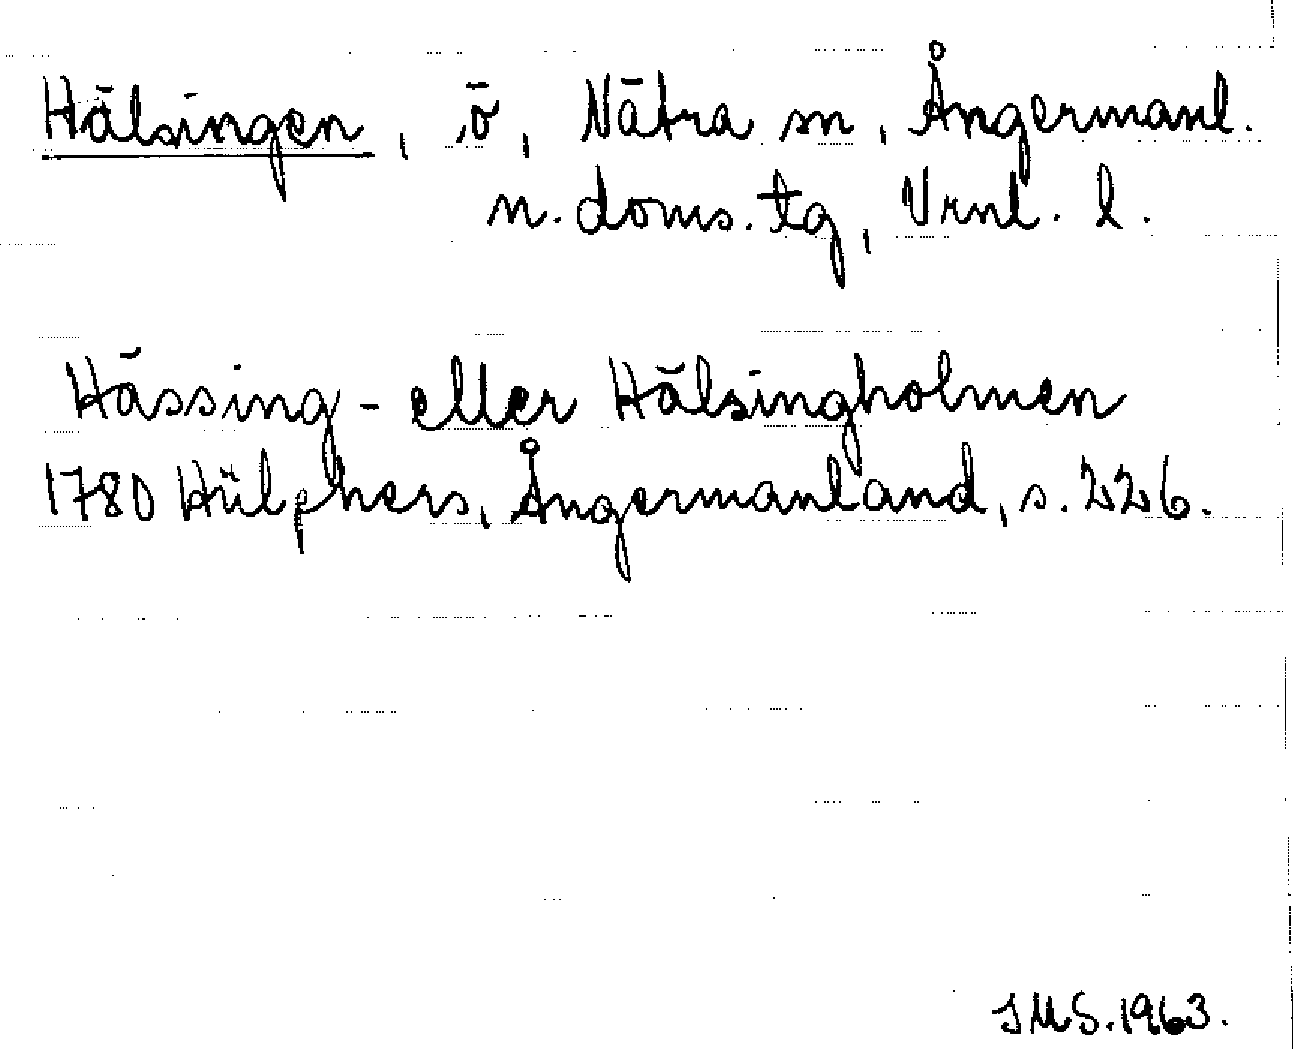 Hälsingen, ö, Nätra sn, Ångermanl.
n. doms. tg, Vrnl. l.
Hässing- eller Hälsingholmen
1780 Hülphers, Ångermanland, s. 226.
JMS. 1963.